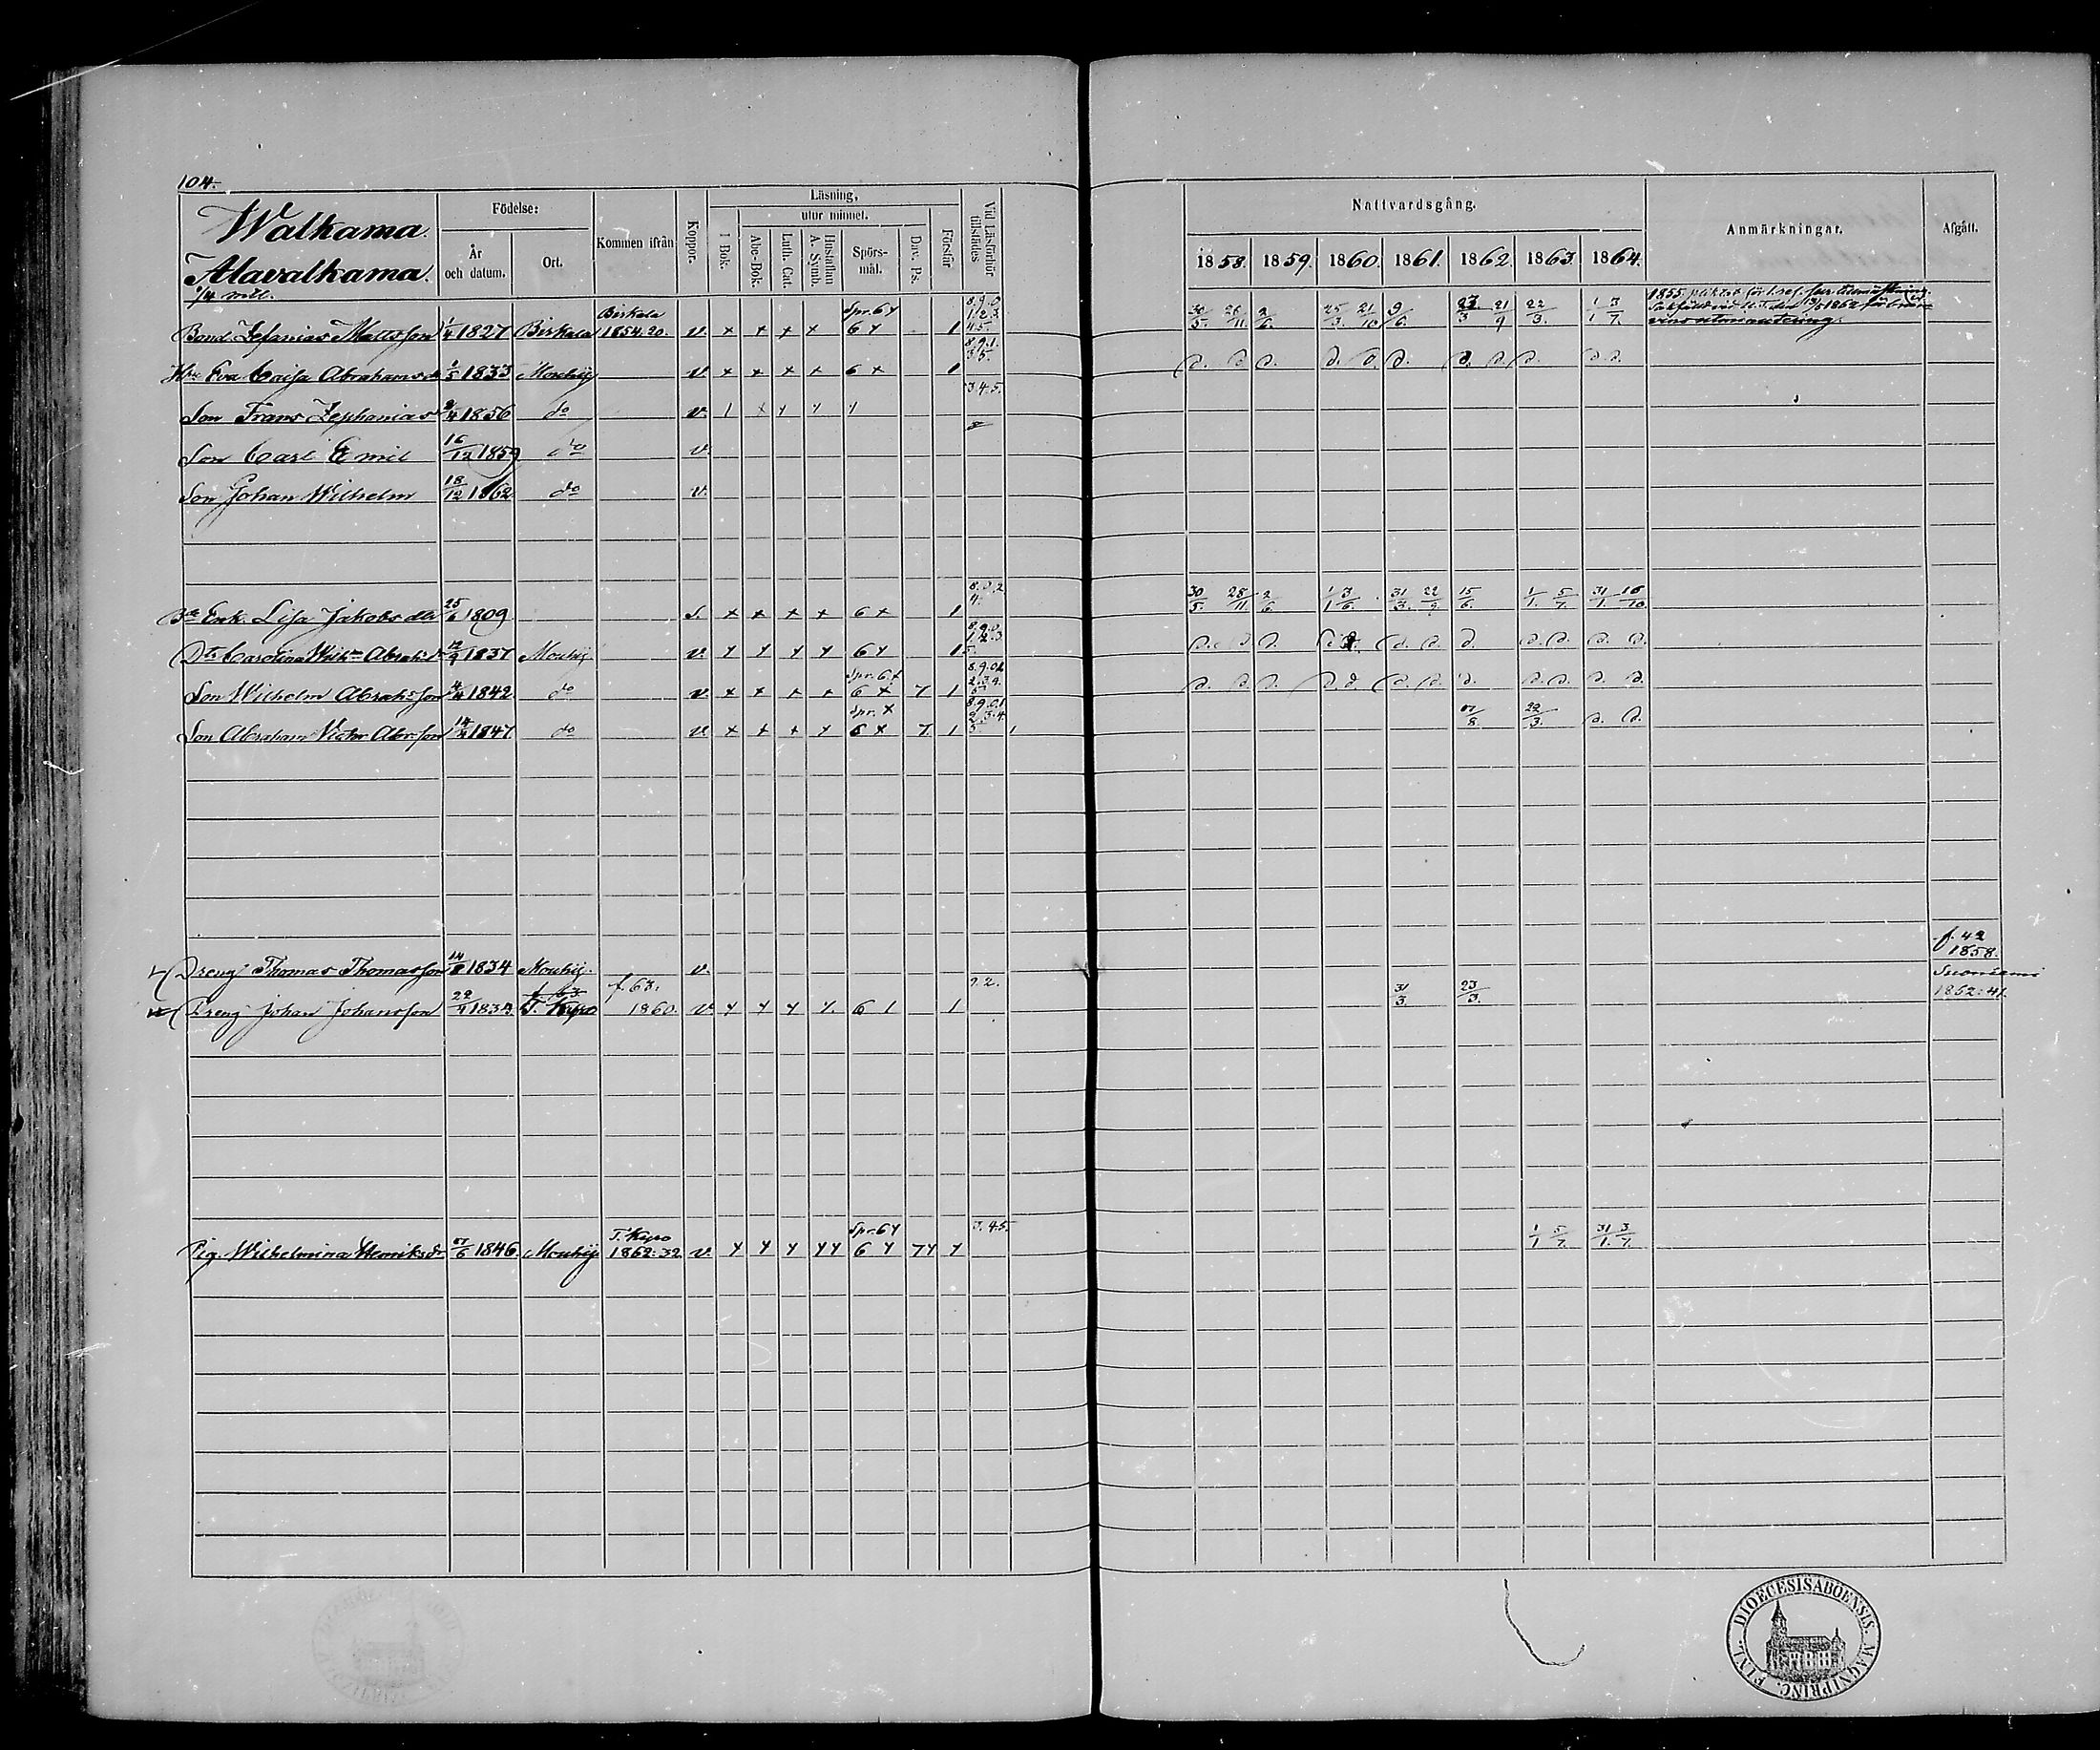 104.
Walkama.
Alavalkama.
1/4 mtl.
Födelse:
År och datum.
Ort.
Kommen ifrån
Koppor.
Läsning,
I Bok.
utur minnet.
Abc-Bok.
Luth. Cat.
Hustaflan A. Symb.
Spörsmål.
Dav. Ps.
Förstår
Vid Läsförhör tillstädes
Nattvardsgång.
1858. 1859. 1860. 1861. 1862. 1863. 1864.
Anmärkningar.
Afgått.
Bond. Zefanias Mattsson 1/4 1827 Birkala Birkala 1854.20. v. + + + + Spr. 6 y 6 y 1 8.9.0. 1.2.3. 4.5. 30/5. 26/11. 2/6. 25/3. 21/10 9/6. 23/3 21/9 22/3. 1/1 3/7. 1855 pliktat för 1 res.
1862 för
H:u Eva Caisa Abrahamsdr 1/5 1833 Mouhij v. + + + + 6 + 1 8.9.1. 3.5. d. d. d. d. d. d. d. d. d. d. d.
Son Frans Zephanias 1856 do v. 1 + y y y 3.4.5.
Son Carl Emil 16/12 1859 do v.
Son Johan Wilhelm 18/12 1862 do v.
Enk. Lisa Jakobs dr 25/6 1809 s. + + + + 6 + 1 30/5 28/11. 2/6 1/1 3/6. 31/3. 22/9. 15/6. 1/1. 5/7. 31/1. 16/10
Dr. Carolina Wilh:a Abrah:dr 1837 Mouhij. v. y y y y 6 y 1 8.9.0. 1.2.3 5. d. d. d. d. d. d. d. d. d. d. d.
Son Wilhelm Abrah:sson 1842 do v. + + + + Spr. 6 + 6 + 7 1 d. d. d. d. d. d. d. d. d. d. d. d.
Son Abraham Victor Abr:sson 1847 do v. + + + y Spr. + 6 + 7. 1 8.9.0.1. 2.3.4. 5. 22/3. d. d.
Dreng Thomas Thomasson 1834 Mouhij. v. f. 42 1858.
Dreng Johan Johansson 22/4 183 T. Kyro f. 63. 1860. v. y y y y. 6 1 1 31/3 23/3. Suoniemi 1862:41.
Pig. Wilhelmina Henriksdr 1846. Mouhij T. Kyro 1862:32 v. y y y y y Spr. 6 y 6 y 7 y y 3.4.5. 1/1 5/7. 31/1. 3/7.
DIOECESIS ABOENSIS. MAGNI PRINC. FINL.